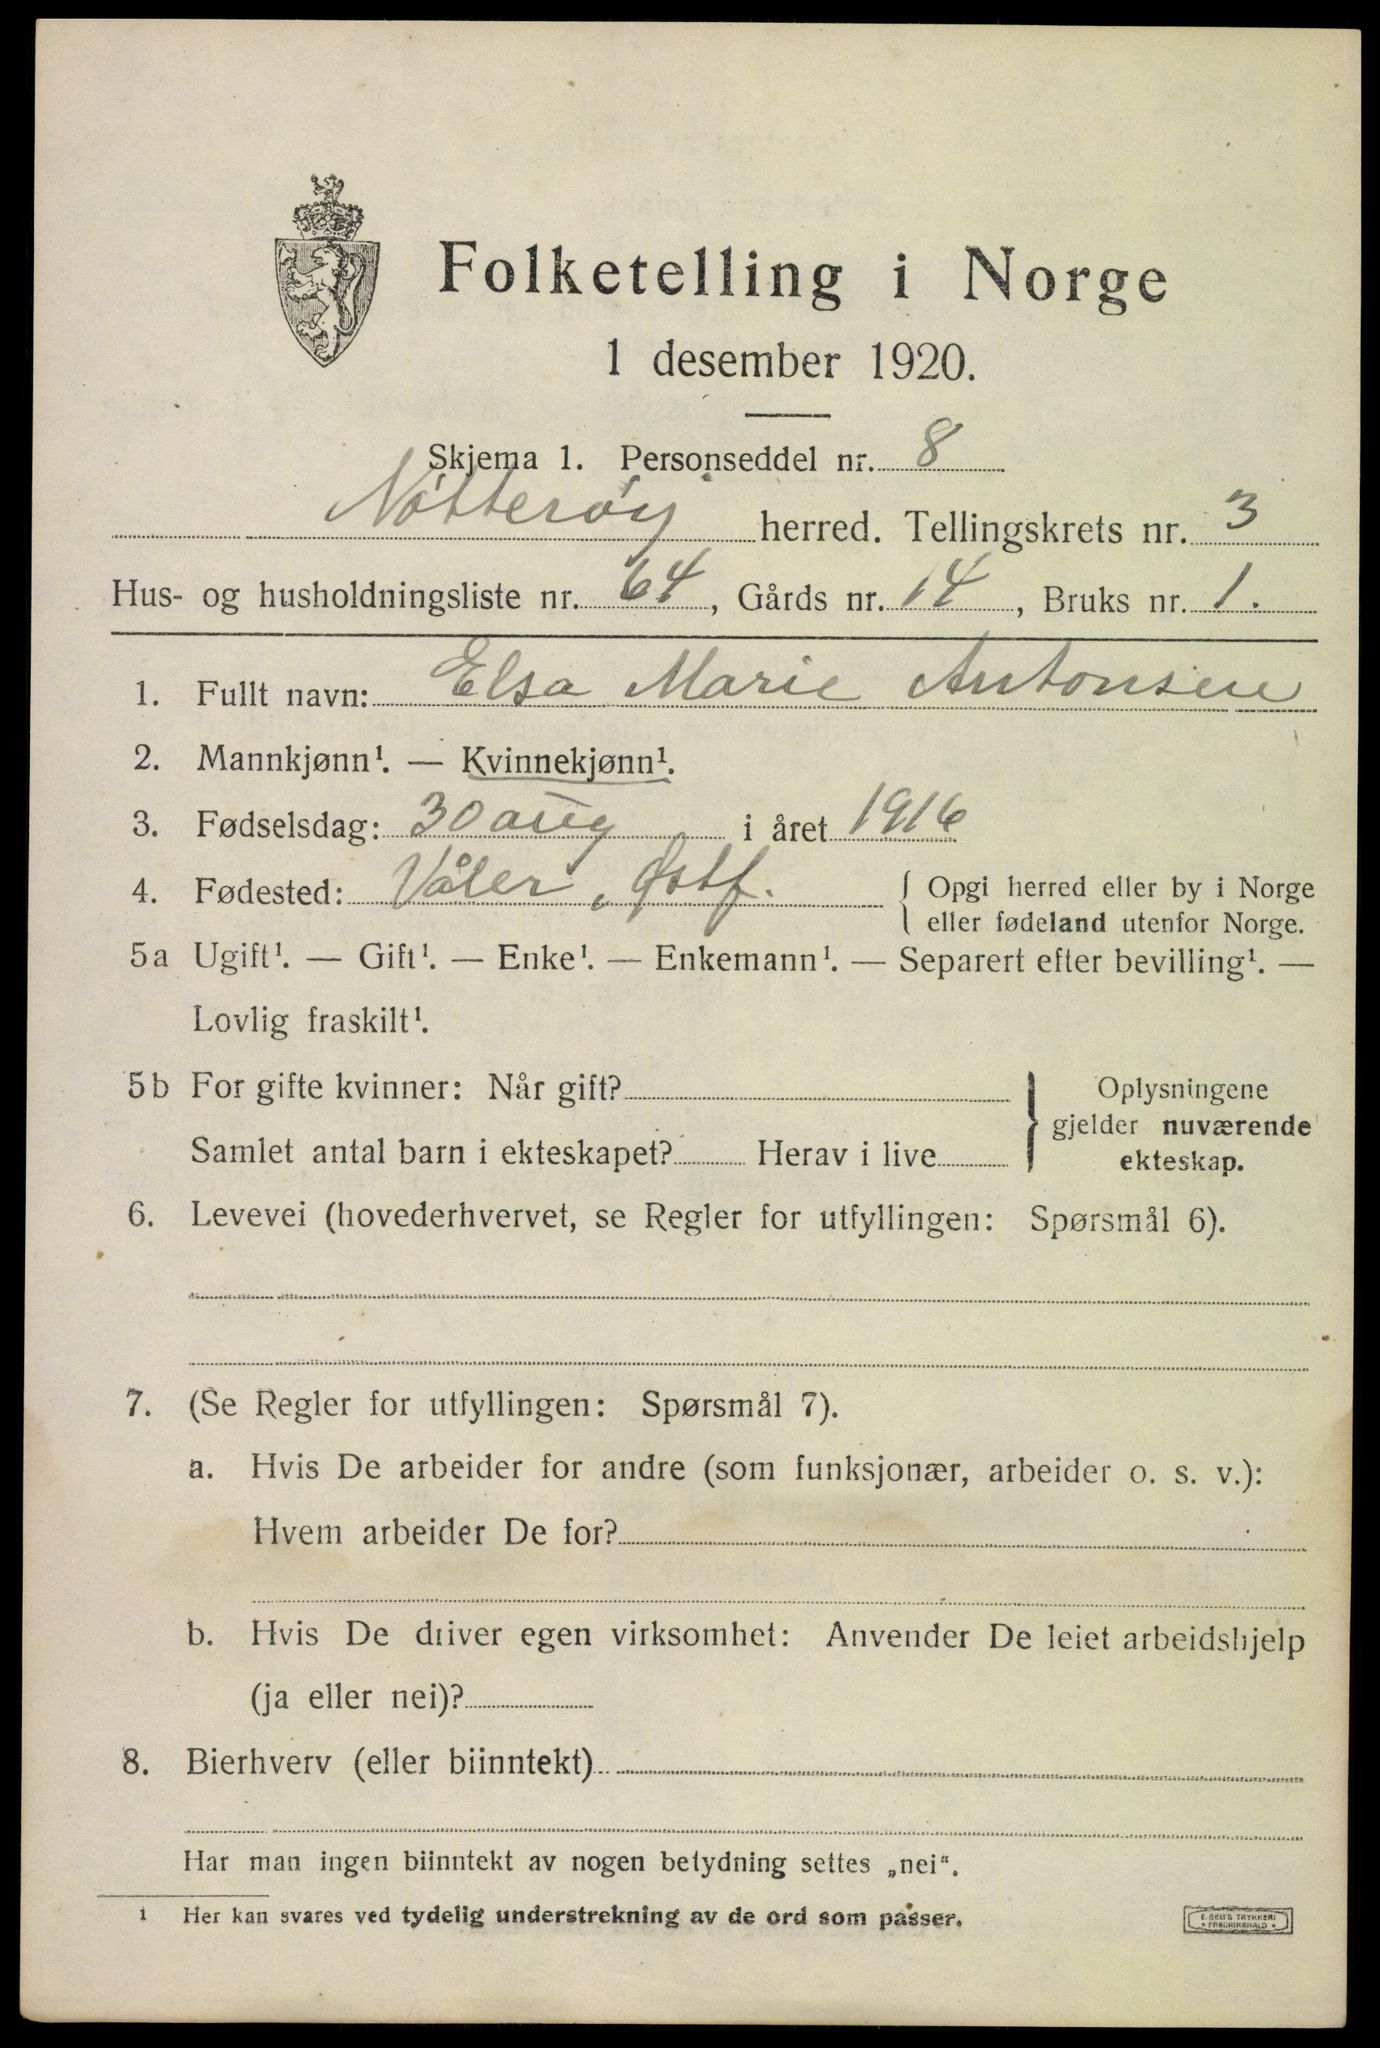 Folketelling i Norge
1 desember 1920.
Skjema 1. Personseddel nr. 8
Nøtterøy herred. Tellingskrets nr. 3
Hus- og husholdningsliste nr. 64, Gårds nr. 14, Bruks nr. 1.
1. Fullt navn: Elsa Marie Antonsen
2. Mannkjønn¹. — Kvinnekjønn¹.
3. Fødselsdag: 30 aug i året 1916
4. Fødested: Våler, Østf. { Opgi herred eller by i Norge
eller fødeland utenfor Norge.
5a Ugift¹. — Gift¹. — Enke¹. — Enkemann¹. — Separert efter bevilling¹. —
Lovlig fraskilt¹.
5b For gifte kvinner: Når gift?
Samlet antal barn i ekteskapet? Herav i live
} Oplysningene
gjelder nuværende
ekteskap.
6. Levevei (hovederhvervet, se Regler for utfyllingen: Spørsmål 6).
7. (Se Regler for utfyllingen: Spørsmål 7).
a. Hvis De arbeider for andre (som funksjonær, arbeider o. s. v.):
Hvem arbeider De for?
b. Hvis De driver egen virksomhet: Anvender De leiet arbeidshjelp
(ja eller nei)?
8. Bierhverv (eller biinntekt)
Har man ingen biinntekt av nogen betydning settes „nei“.
¹ Her kan svares ved tydelig understrekning av de ord som passer.
E. SEM'S TRYKKERI
FREDRIKSHALD